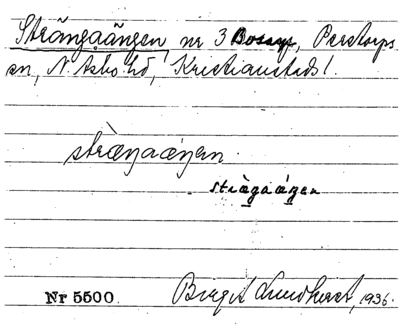 Strängaängen nr 3 Bosarp, Perstorps
sn, N. Åsbo hd, Kristianstads l.
stræŋaæŋen
Nr 5500. Birgit Lundkvist, 1936.